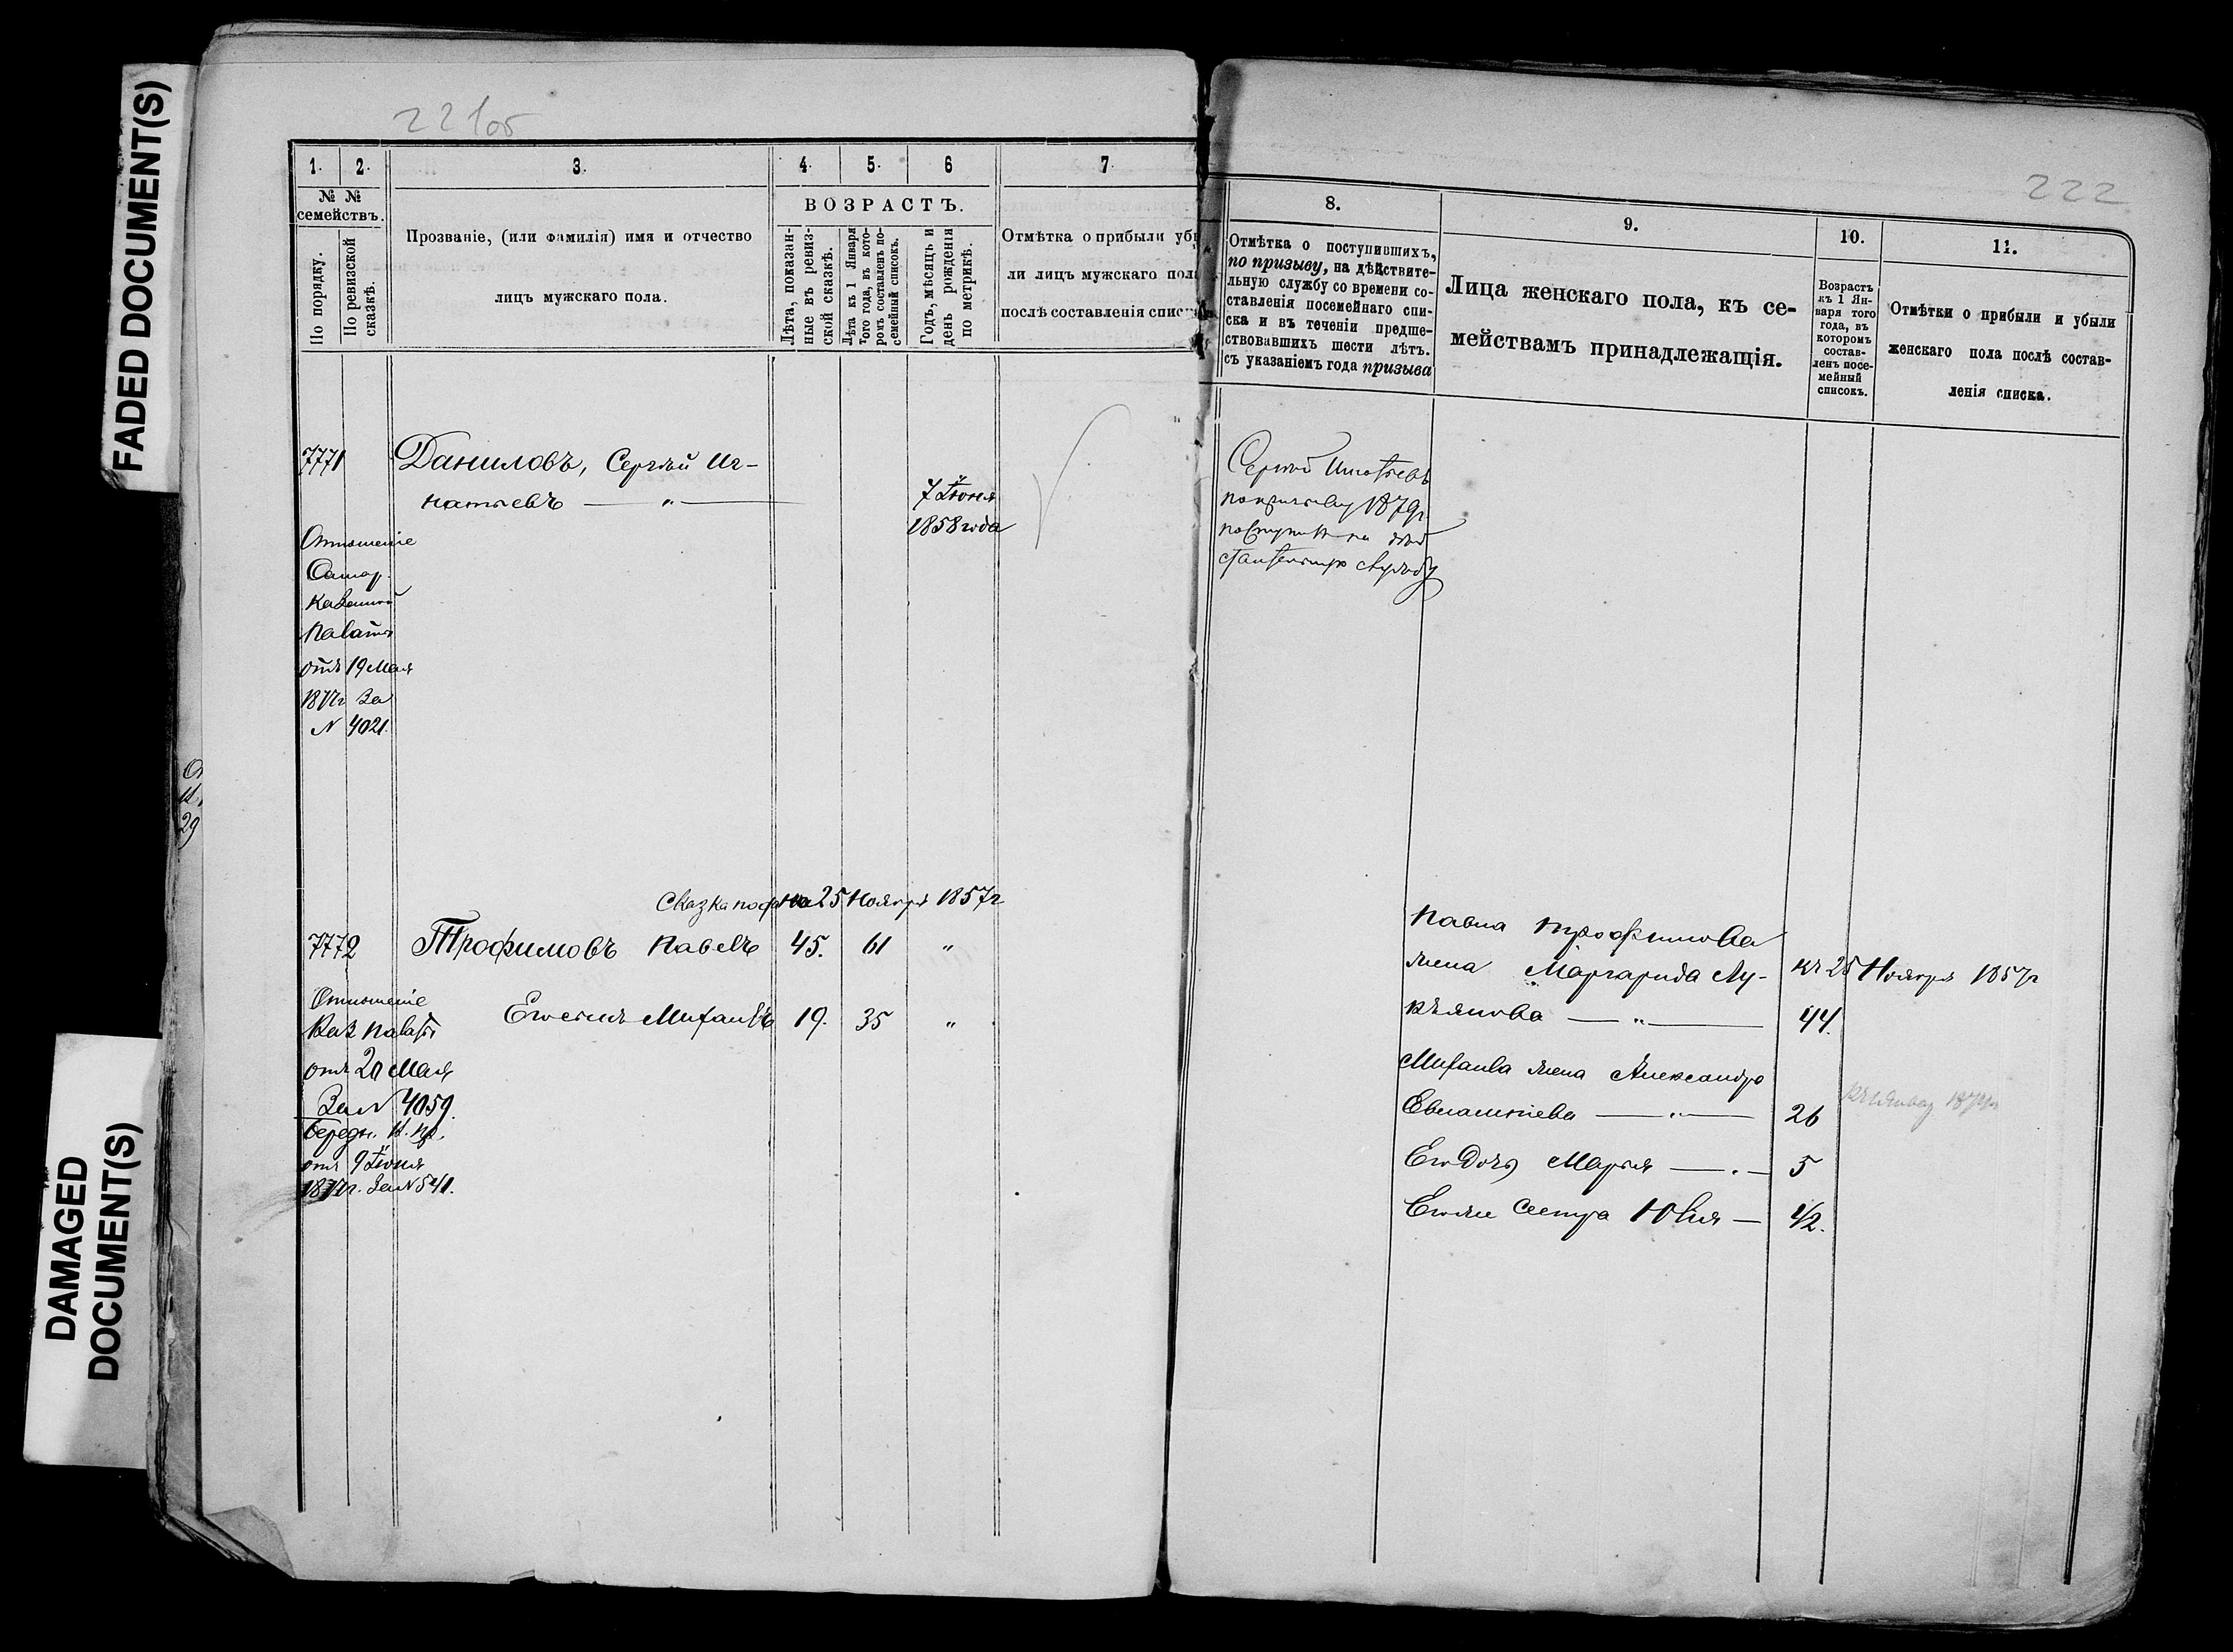 FADED DOCUMENT(S)
DAMAGED
DOCUMENT(S)
221об
1.
2.
3.
4.
5.
6
7.
№ №
семействъ.
По порядку.
По ревизской
сказкѣ.
Прозваніе, (или фамилія) имя и отчество
лицъ мужскаго пола.
ВОЗРАСТЪ.
Лѣта, показан-
ныя въ ревиз-
ской сказкѣ.
Лѣта къ 1 Января
того года, въ кото-
ромъ составленъ по-
семейный списокъ.
Годъ, мѣсяцъ и
день рожденія
по метрикѣ.
Отмѣтка о прибыли убы
ли лицъ мужскаго пола
послѣ составленія списка
7771
Даниловъ, Сергѣй Иг-
натьевъ — " —
7 Іюня
1858 года
Отношеніе
Самар.
Казенной
Палаты
отъ 19 Мая
1877г За
N 4021.
Сказка под на 25 Ноября 1857г
7772
Трофимовъ Павелъ
45.
61
"
Его сынъ Михаилъ
19.
35
"
Отношеніе
Каз Палаты
отъ 20 Мая
За N 4059.
отъ 9 Іюня
1877г. За N 541.
222
8.
9.
10.
11.
Отмѣтка о поступившихъ,
по призыву, на дѣйствите-
льную службу со времени со-
ставленія посемейнаго спи-
ска и въ теченіи предше-
ствовавшихъ шести лѣтъ.
съ указаніемъ года призыва
Лица женскаго пола, къ се-
мействамъ принадлежащія.
Возрастъ
къ 1 Ян-
варя того
года, въ
которомъ
состав-
ленъ посе-
мейный
списокъ.
Отмѣтки о прибыли и убыли
женскаго пола послѣ состав-
ленія списка.
Сергѣй Игнатьевъ
по призыву 1879г.
поступилъ на дѣй
ствительную службу
Павла Трофимова
жена Маргарида Лу-
къ 25 Ноября 1857г
кьянова — " —
44.
Михаила жена Александра
Евлампіева — " —
26
къ 1 Январ 1874г
Его дочь Марья — . —
5
Его же сестра Юлія —
1/2.